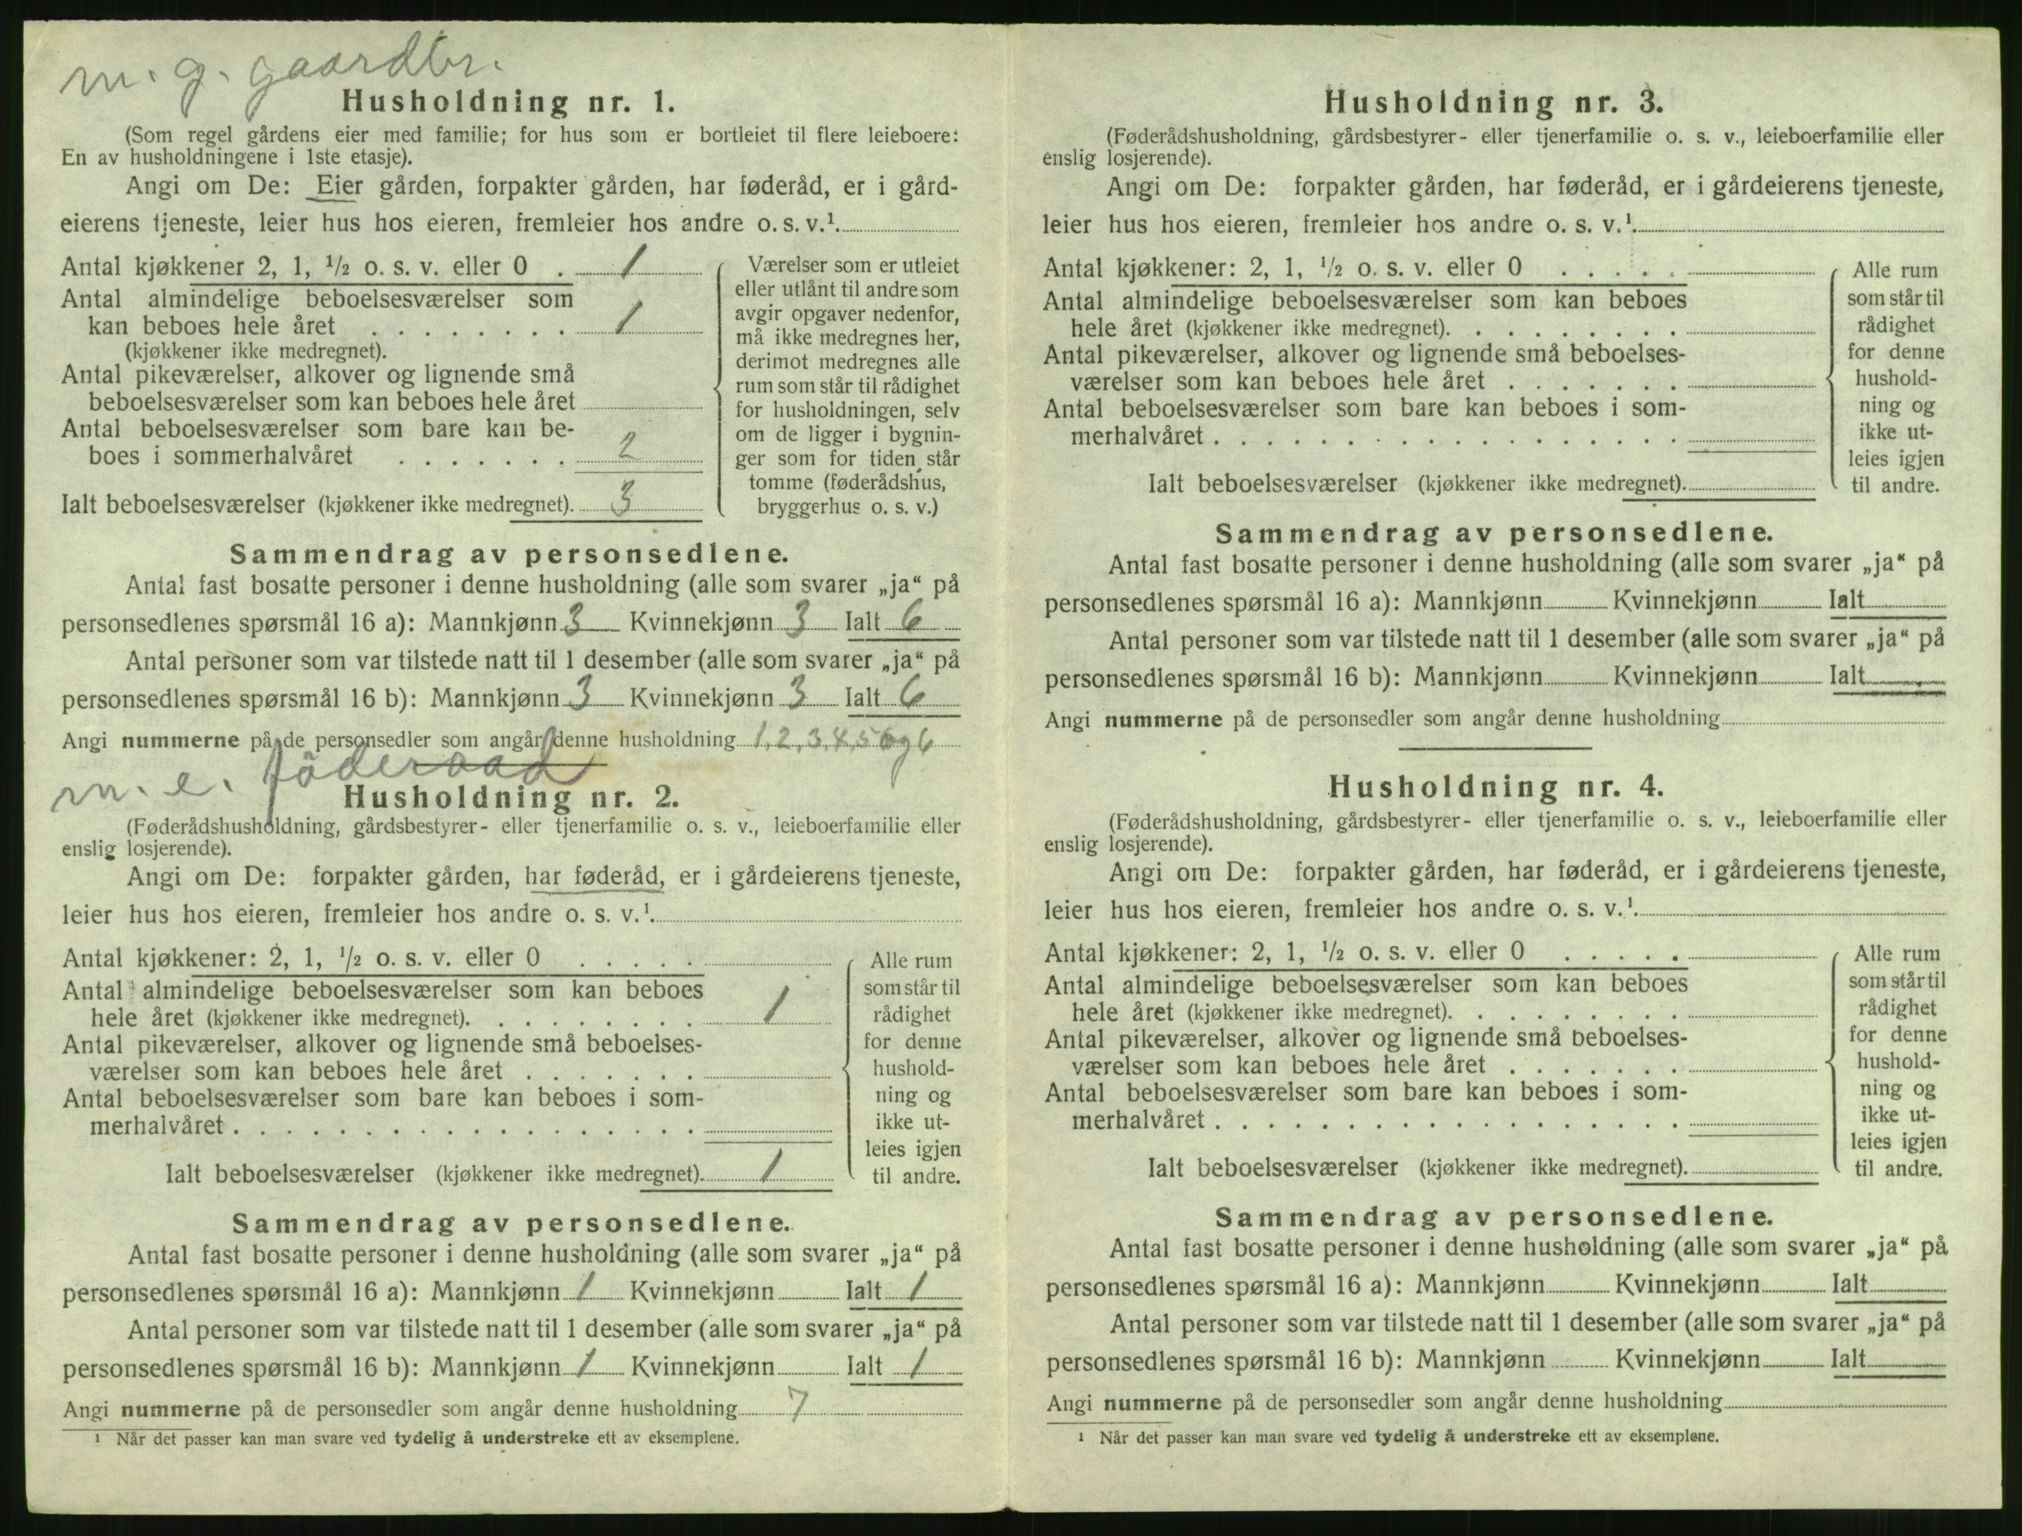 m. g. gaardbr.
Husholdning nr. 1.
(Som regel gårdens eier med familie; for hus som er bortleiet til flere leieboere:
En av husholdningene i 1ste etasje).
Angi om De: Eier gården, forpakter gården, har føderåd, er i gård-
eierens tjeneste, leier hus hos eieren, fremleier hos andre o. s. v.¹.
Antal kjøkkener 2, 1, ½ o. s. v. eller 0 . 1
Antal almindelige beboelsesværelser som
kan beboes hele året . . . . . . . . 1
(kjøkkener ikke medregnet).
Antal pikeværelser, alkover og lignende små
beboelsesværelser som kan beboes hele året
Antal beboelsesværelser som bare kan be-
boes i sommerhalvåret . . . . . . . 2
Ialt beboelsesværelser (kjøkkener ikke medregnet). 3
Værelser som er utleiet
eller utlånt til andre som
avgir opgaver nedenfor,
må ikke medregnes her,
derimot medregnes alle
rum som står til rådighet
for husholdningen, selv
om de ligger i bygnin-
ger som for tiden står
tomme (føderådshus,
bryggerhus o. s. v.)
Sammendrag av personsedlene.
Antal fast bosatte personer i denne husholdning (alle som svarer „ja“ på
personsedlenes spørsmål 16 a): Mannkjønn 3 Kvinnekjønn 3 Ialt 6
Antal personer som var tilstede natt til 1 desember (alle som svarer „ja“ på
personsedlenes spørsmål 16 b): Mannkjønn 3 Kvinnekjønn 3 Ialt 6
Angi nummerne på de personsedler som angår denne husholdning 1, 2, 3, 4, 5 og 6
m. e. föderaad
Husholdning nr. 2.
(Føderådshusholdning, gårdsbestyrer- eller tjenerfamilie o. s. v., leieboerfamilie eller
enslig losjerende).
Angi om De: forpakter gården, har føderåd, er i gårdeierens tjeneste,
leier hus hos eieren, fremleier hos andre o. s. v.¹.
Antal kjøkkener: 2, 1, ½ o. s. v. eller 0 . . . . .
Antal almindelige beboelsesværelser som kan beboes
hele året (kjøkkener ikke medregnet). . . . . . . . . 1
Antal pikeværelser, alkover og lignende små beboelses-
værelser som kan beboes hele året . . . . . . .
Antal beboelsesværelser som bare kan beboes i som-
merhalvåret . . . . . . . . . . . . . . . . . .
Ialt beboelsesværelser (kjøkkener ikke medregnet). 1
Alle rum
som står til
rådighet
for denne
hushold-
ning og
ikke ut-
leies igjen
til andre.
Sammendrag av personsedlene.
Antal fast bosatte personer i denne husholdning (alle som svarer „ja“ på
personsedlenes spørsmål 16 a): Mannkjønn 1 Kvinnekjønn Ialt 1
Antal personer som var tilstede natt til 1 desember (alle som svarer „ja“ på
personsedlenes spørsmål 16 b): Mannkjønn 1 Kvinnekjønn Ialt 1
Angi nummerne på de personsedler som angår denne husholdning 7
¹ Når det passer kan man svare ved tydelig å understreke ett av eksemplene.
Husholdning nr. 3.
(Føderådshusholdning, gårdsbestyrer- eller tjenerfamilie o. s. v., leieboerfamilie eller
enslig losjerende).
Angi om De: forpakter gården, har føderåd, er i gårdeierens tjeneste,
leier hus hos eieren, fremleier hos andre o. s. v.¹.
Antal kjøkkener: 2, 1, ½ o. s. v. eller 0 . . . . .
Antal almindelige beboelsesværelser som kan beboes
hele året (kjøkkener ikke medregnet). . . . . . . . .
Antal pikeværelser, alkover og lignende små beboelses-
værelser som kan beboes hele året . . . . . . .
Antal beboelsesværelser som bare kan beboes i som-
merhalvåret . . . . . . . . . . . . . . . . . .
Ialt beboelsesværelser (kjøkkener ikke medregnet).
Alle rum
som står til
rådighet
for denne
hushold-
ning og
ikke ut-
leies igjen
til andre.
Sammendrag av personsedlene.
Antal fast bosatte personer i denne husholdning (alle som svarer „ja“ på
personsedlenes spørsmål 16 a): Mannkjønn Kvinnekjønn Ialt
Antal personer som var tilstede natt til 1 desember (alle som svarer „ja“ på
personsedlenes spørsmål 16 b): Mannkjønn Kvinnekjønn Ialt
Angi nummerne på de personsedler som angår denne husholdning
Husholdning nr. 4.
(Føderådshusholdning, gårdsbestyrer- eller tjenerfamilie o. s. v., leieboerfamilie eller
enslig losjerende).
Angi om De: forpakter gården, har føderåd, er i gårdeierens tjeneste,
leier hus hos eieren, fremleier hos andre o. s. v.¹.
Antal kjøkkener: 2, 1, ½ o. s. v. eller 0 . . . . .
Antal almindelige beboelsesværelser som kan beboes
hele året (kjøkkener ikke medregnet). . . . . . . . .
Antal pikeværelser, alkover og lignende små beboelses-
værelser som kan beboes hele året . . . . . . .
Antal beboelsesværelser som bare kan beboes i som-
merhalvåret . . . . . . . . . . . . . . . . . .
Ialt beboelsesværelser (kjøkkener ikke medregnet).
Alle rum
som står til
rådighet
for denne
hushold-
ning og
ikke ut-
leies igjen
til andre.
Sammendrag av personsedlene.
Antal fast bosatte personer i denne husholdning (alle som svarer „ja“ på
personsedlenes spørsmål 16 a): Mannkjønn Kvinnekjønn Ialt
Antal personer som var tilstede natt til 1 desember (alle som svarer „ja“ på
personsedlenes spørsmål 16 b): Mannkjønn Kvinnekjønn Ialt
Angi nummerne på de personsedler som angår denne husholdning
¹ Når det passer kan man svare ved tydelig å understreke ett av eksemplene.